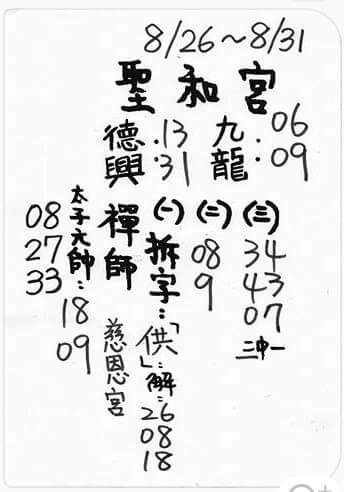 8/26~8/31
聖和宮
九龍:06 09
德興:13 31
(三)34 43 07 三中一
(二)08 9
(一)拆字:「供」:解:26 08 18
禪師
慈恩宮
太子元帥:18 09
08 27 33